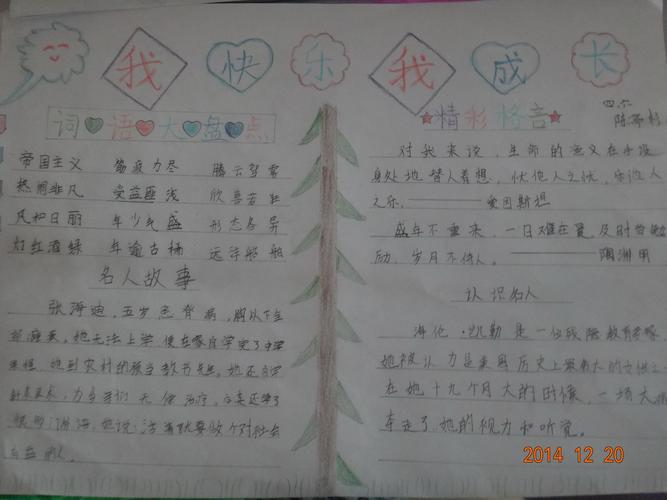 我快乐 我成长
词语大盘点
帝国主义 筋疲力尽 腾云驾雾
热闹非凡 受益匪浅 欣喜若狂
风和日丽 年少气盛 形态各异
灯红酒绿 年逾古稀 远洋船舶
名人故事
张海迪,五岁患脊病,胸以下全
她无法上学,便在家自学完了中学
她到农村 她还自学
无偿治疗,
她说:活着就要做个对社会
有益的人。
精彩格言
四六
对我来说,生命的意义在于设
身处地替人着想,忧他人之忧,乐他人
之乐。————爱因斯坦
盛年不重来,一日难在晨,及时当勉
励,岁月不待人。————陶渊明
认识名人
海伦·凯勒是一位残障教育家,
她被认为是美国历史上最伟大的
在她十九个月大的时候,一场大病
夺走了她的视力和听觉。
2014 12 20